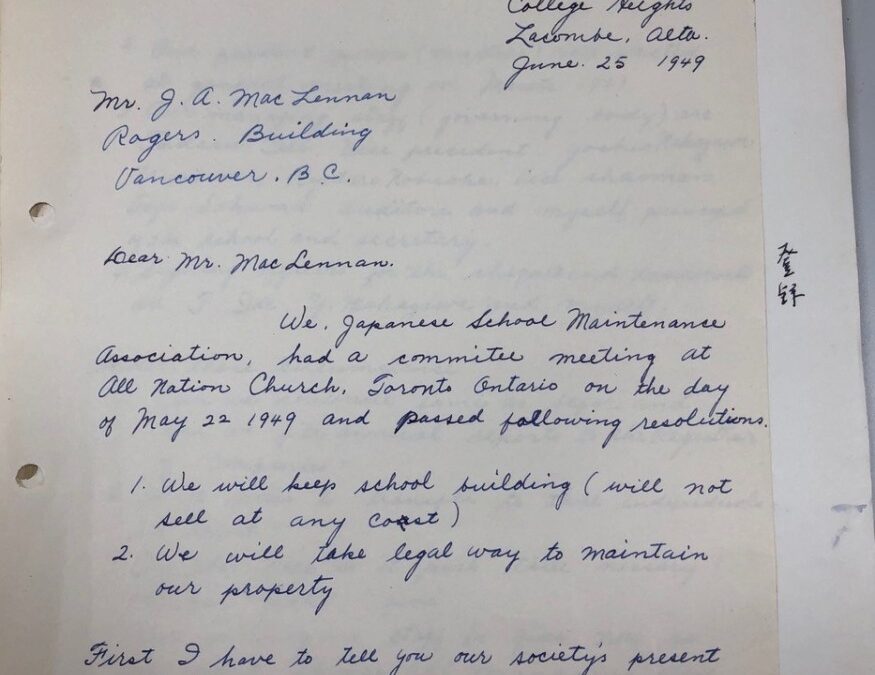 College Heights
Lacombe, Alta.
June. 25 1949
Mr. J. A. Mac Lennan
Rogers. Building
Vancouver. B.C.
Dear Mr. Mac Lennan.
We, Japanese School Maintenance
Association, had a commitee meeting at
All Nation Church, Toronto Ontario on the day
of May 22 1949 and passed following resolutions.
1. We will keep school building (will not
sell at any cost)
2. We will take legal way to maintain
our property
First I have to tell you our society's present